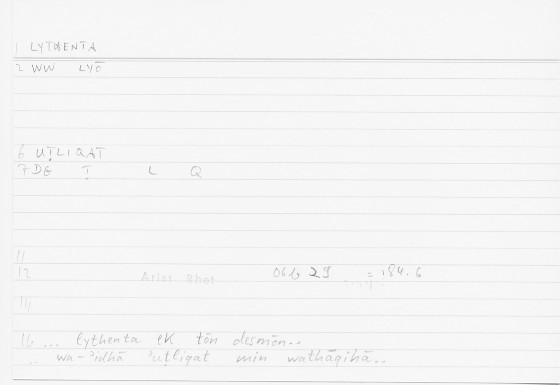 1 LYTHENTA
2 WW LYŌ
6 UṬLIQAT
7 DE Ṭ L Q
11
12 Arist Rhet 06b 29 = 184.6
14
16 ... lythenta ek tōn desmōn..
.. wa-ʾidhā ʾuṭliqat min wathāqihā..